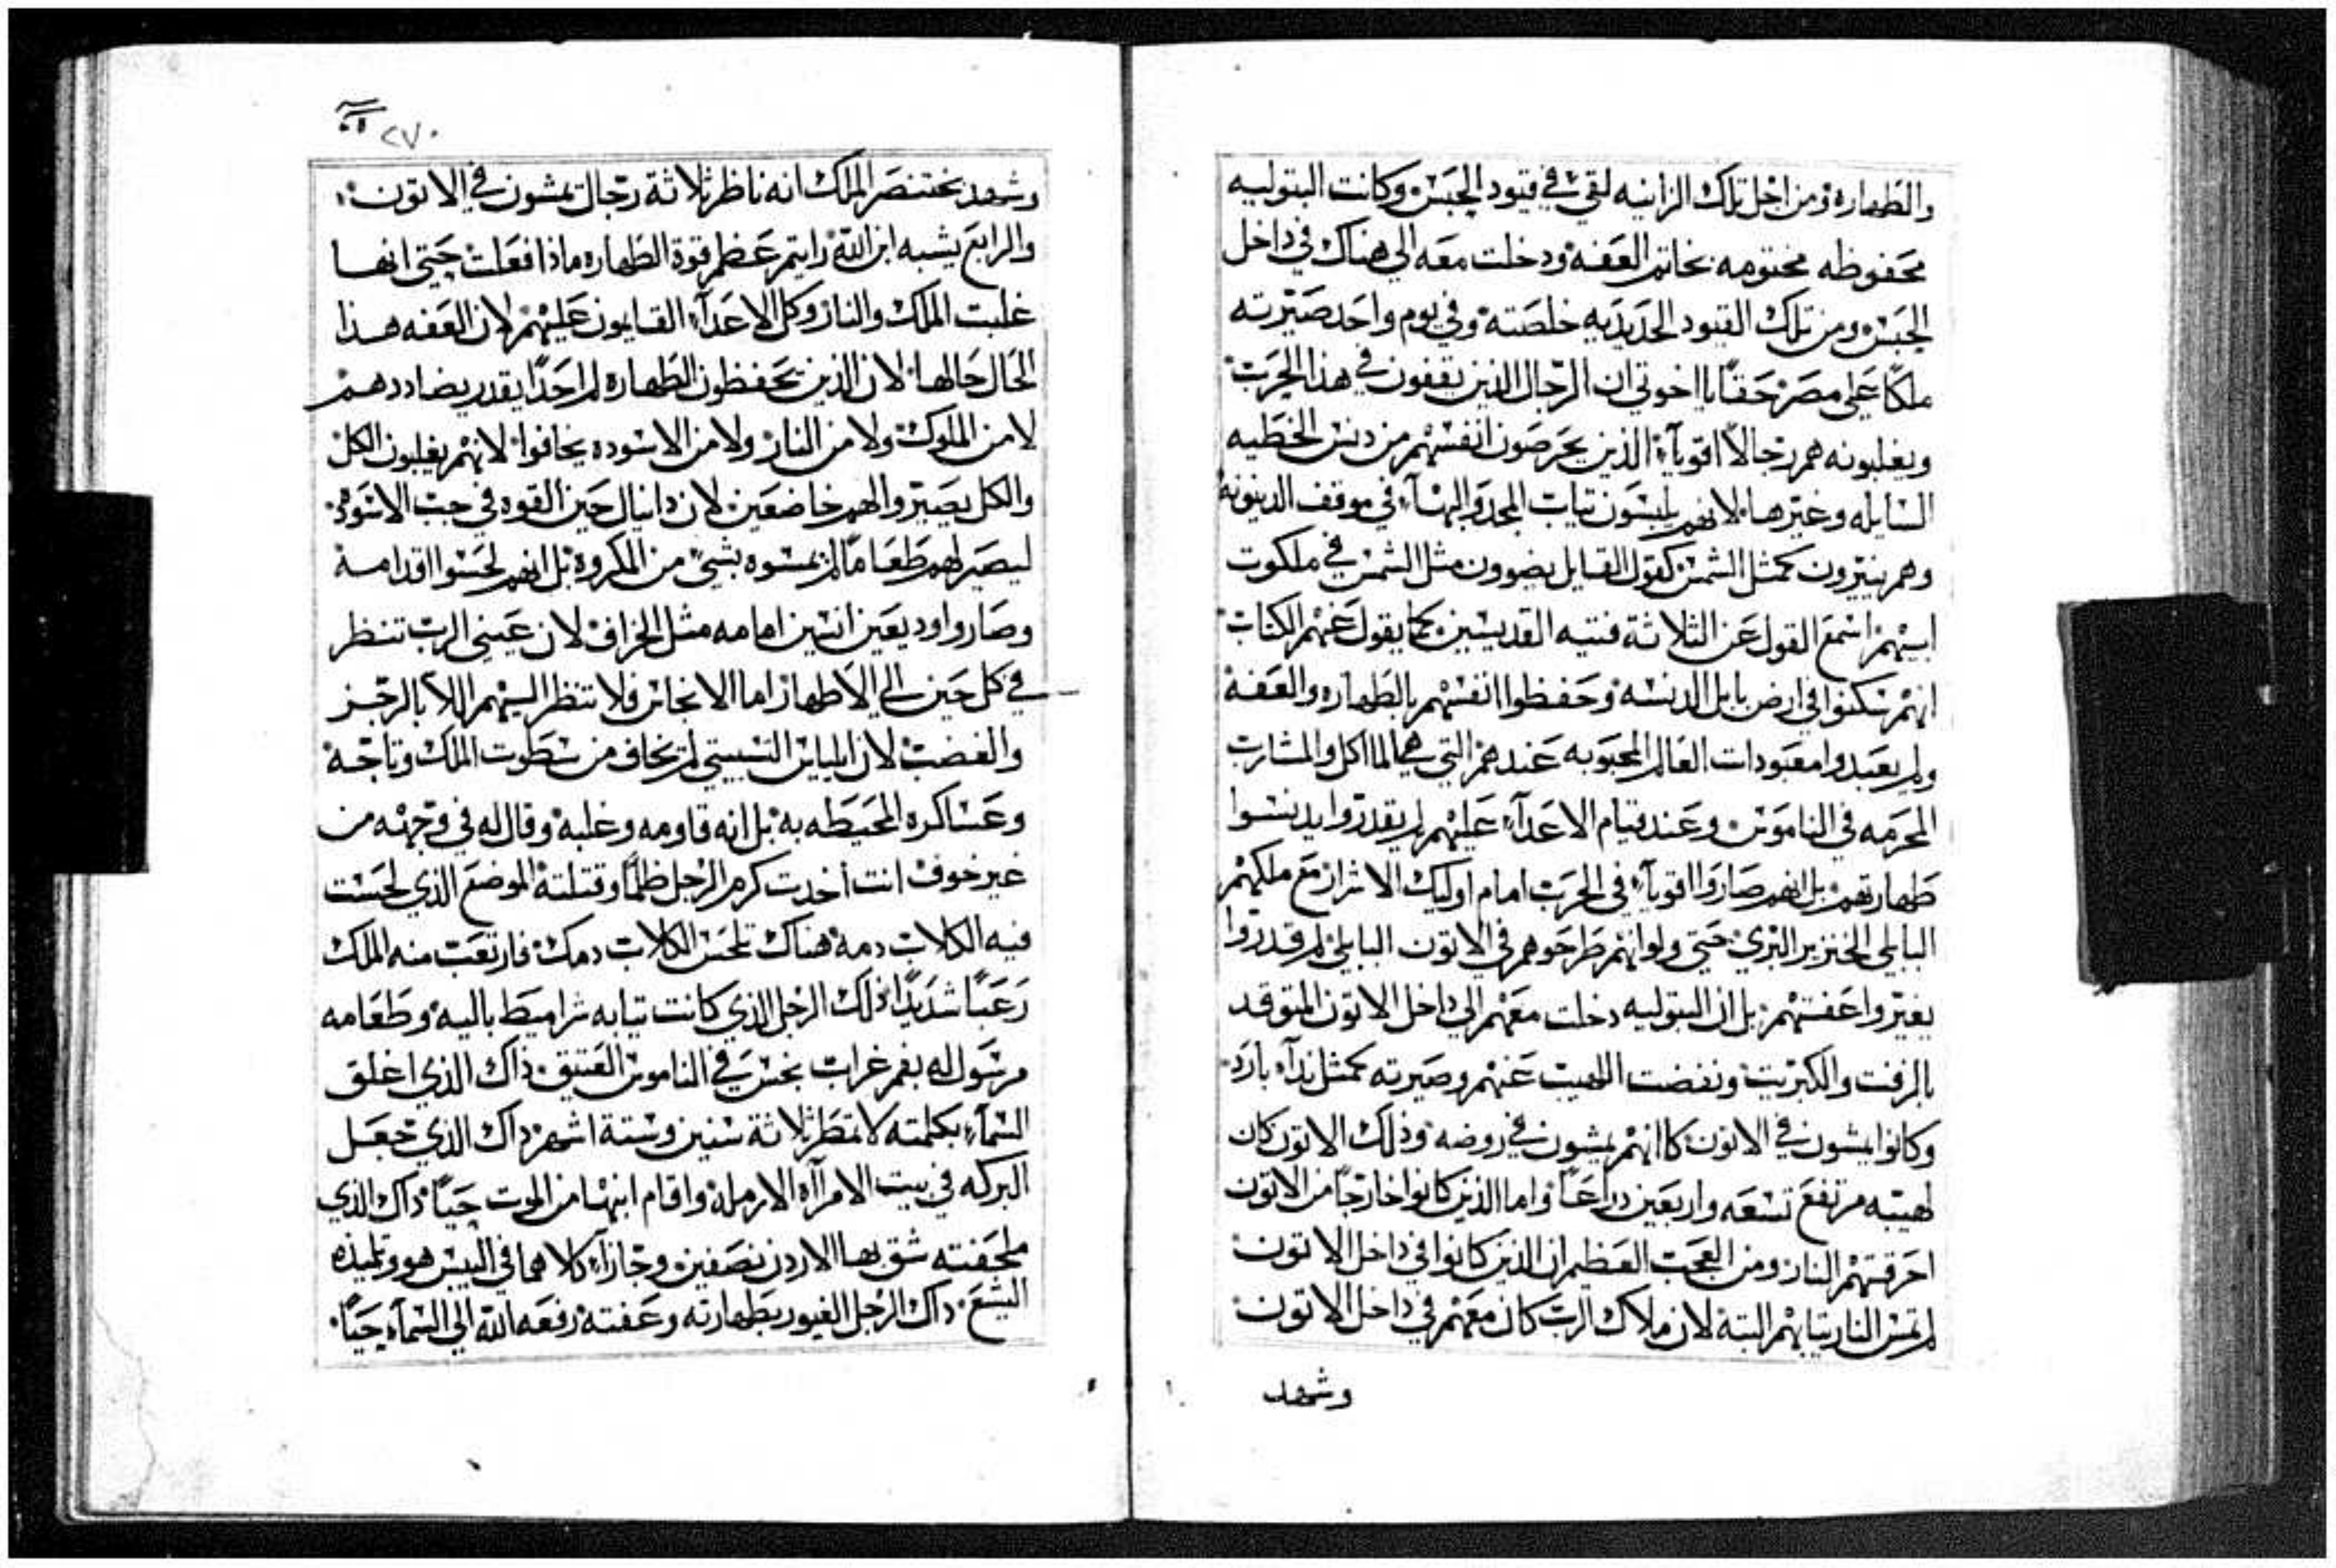 والطهاره ومن اجل تلك الزانيه لقي في قيود الحبس وكانت البتوليه
محفوظه مختومه بخاتم العفه ودخلت معه الي هناك في داخل
الحبس ومن تلك القيود الحديديه خلصته وفي يوم واحد صيرته
ملكًا علي مصر حقًا يااخوتي ان الرجال الذين يقفون في هذا الحرب
ويغلبونه هم رجالاً اقويآء الذين يحرصون انفسهم من دنس الخطيه
السايله وغيرها لانهم يلبسون تياب المجد والبهآء في موقف الدينونه
وهم ينيرون كمثل الشمس كقول القايل يضوون مثل الشمس في ملكوت
ابيهم اسمع القول عن الثلاثة فتيه القديسين كما يقول عنهم الكتاب
انهم سكنوا في ارض بابل الدنسه وحفظوا انفسهم بالطهاره والعفه
ولم يعبدوا معبودات العالم المحبوبه عندهم التي هي الماكل والمشارب
المحرمه في الناموس وعند قيام الاعدآء عليهم لم يقدروا يدنسوا
طهارتهم بل انهم صاروا اقويآء في الحرب امام اوليك الاشرار مع ملكهم
البابلي الخنزير البري حتي ولو انهم طرحوهم في الاتون البابلي لم قدروا
يغيروا عفتهم بل ان البتوليه دخلت معهم الي داخل الاتون المتوقد
بالزفت والكبريت ونفضت اللهيب عنهم وصيرته كمثل ندآء بارد
وكانوا يمشون في الاتون كاانهم يمشون في روضه وذلك الاتون كان
لهيبه مرتفع تسعه واربعين دراعًا واما الذين كانوا خارجًا من الاتون
احرقتهم النار ومن العجب العظيم ان الذين كانوا في داخل الاتون
لم تمس النار تيابهم البته لان ملاك الرب كان معهم في داخل الاتون
وشهد
٢٧٠
وشهد بختنصر الملك انه ناظر ثلاثة رجال يمشون في الاتون
والرابع يشبه ابن الله رايتم عظم قوة الطهاره ماذا فعلت حتي انها
غلبت الملك والنار وكل الاعدآء القايمون عليهم لان العفه هذا
الحال حالها لان الذين يحفظون الطهاره لم احدًا يقدر يضاددهم
لا من الملوك ولا من النار ولا من الاسوده يخافوا لانهم يغلبون الكل
والكل يصيروا لهم خاضعين لان دانيال حين القوه في جب الاسود
ليصير لهم طعامًا لم يمسوه بشي من المكروه بل انهم لحسوا اقدامه
وصاروا وديعين انسين امامه مثل الخراف لان عيني الرب تنظر
في كل حين الي الاطهار اما الانجاس فلا تنظر اليهم اللا بالرجز
والغضب لان ايلياس التسبيتي لم يخاف من سطوت الملك وتاجه
وعساكره المحيطه به بل انه قاومه وغلبه وقال له في وجهه من
غير خوف انت أخدت كرم الرجل ظلمًا وقتلته الموضع الذي لحست
فيه الكلاب دمه هناك تلحس الكلاب دمك فارتعب منه الملك
رعبًا شديدًا ذلك الرجل الذي كانت تيابه شراميط باليه وطعامه
مرسول له بفم غراب نجس في الناموس العتيق ذاك الذي اغلق
السمآء بكلمته لا تمطر ثلاثة سنين وستة اشهر داك الذي جعل
البركه في بيت الامرآاه الارمله واقام ابنها من الموت حيًا داك الذي
ملحفته شق بها الاردن نصفين وجازآء كلاهما في اليبس هو وتلميذه
اليشع داك الرجل الغيور بطهارته وعفته رفعه الله الي السمآء حيًا